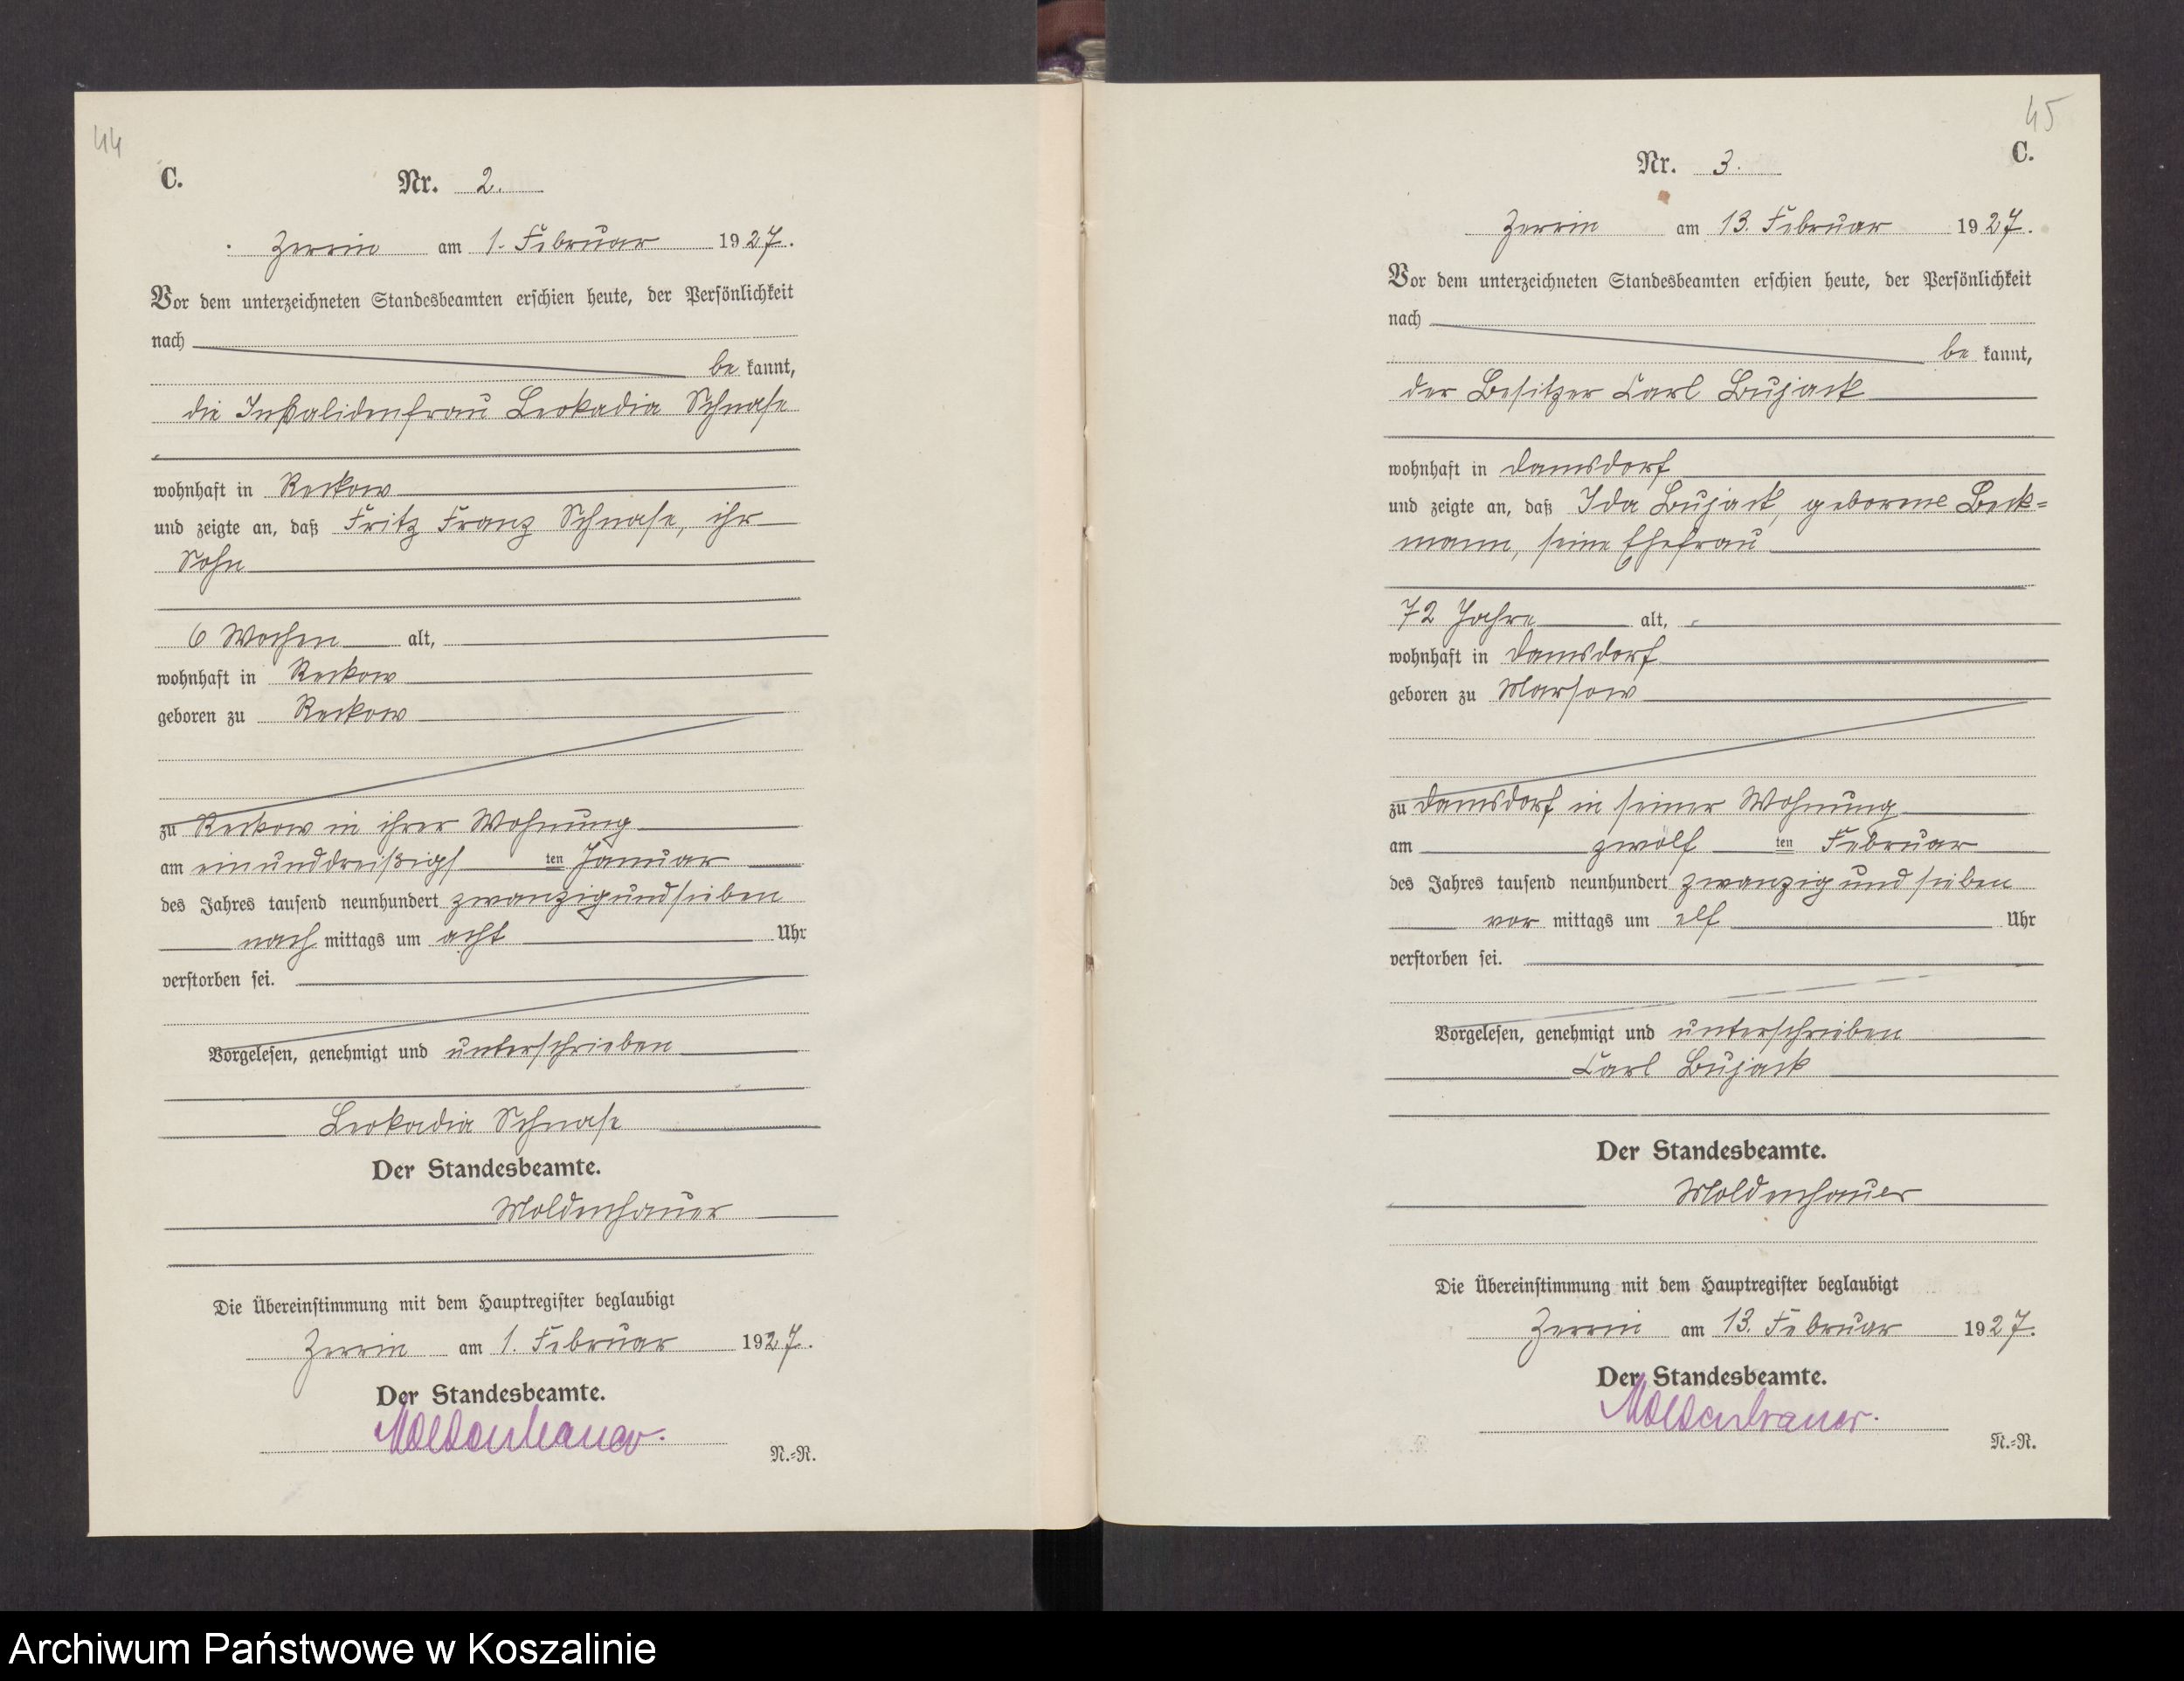 44
C.
Nr. 2.
Zerrin am 1. Februar 1927.
Vor dem unterzeichneten Standesbeamten erschien heute, der Persönlichkeit
nach
be kannt,
die Invalidenfrau Leokadia Schnase
wohnhaft in Reckow
und zeigte an, daß Fritz Franz Schnase, ihr
Sohn
6 Wochen alt,
wohnhaft in Reckow
geboren zu Reckow
zu Reckow in ihrer Wohnung
am einunddreißigsten Januar
des Jahres tausend neunhundert zwanzigundsieben
nach mittags um acht Uhr
verstorben sei.
Vorgelesen, genehmigt und unterschrieben
Leokadia Schnase
Der Standesbeamte.
Moldenhauer
Die Übereinstimmung mit dem Hauptregister beglaubigt
Zerrin am 1. Februar 1927.
Der Standesbeamte.
Moldenhauer.
N.=R.
45
C.
Nr. 3.
Zerrin am 13. Februar 1927.
Vor dem unterzeichneten Standesbeamten erschien heute, der Persönlichkeit
nach
be kannt,
der Besitzer Carl Bujack
wohnhaft in Damsdorf
und zeigte an, daß Ida Bujack, geborene Beck=
mann, seine Ehefrau
72 Jahre alt,
wohnhaft in Damsdorf
geboren zu Marsow
zu Damsdorf in seiner Wohnung
am zwölf ten Februar
des Jahres tausend neunhundert zwanzig und sieben
vor mittags um elf Uhr
verstorben sei.
Vorgelesen, genehmigt und unterschrieben
Carl Bujack
Der Standesbeamte.
Moldenhauer
Die Übereinstimmung mit dem Hauptregister beglaubigt
Zerrin am 13. Februar 1927.
Der Standesbeamte.
Moldenhauer.
N.=R.
Archiwum Państwowe w Koszalinie